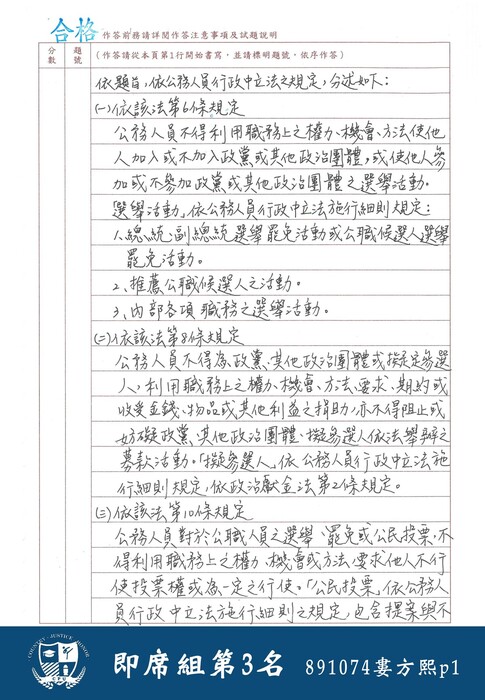 合格 作答前務請詳閱作答注意事項及試題說明
分數 題號 (作答請從本頁第1行開始書寫，並請標明題號，依序作答)
依題旨，依公務人員行政中立法之規定，分述如下：
(一)依該法第6條規定
公務人員不得利用職務上之權力、機會、方法使他
人加入或不加入政黨或其他政治團體，或使他人參
加或不參加政黨或其他政治團體之選舉活動。
選舉活動，依公務人員行政中立法施行細則規定：
1、總統、副總統選舉罷免活動或公職候選人選舉
罷免活動。
2、推薦公職候選人之活動。
3、內部各項職務之選舉活動。
(二)依該法第8條規定
公務人員不得為政黨、其他政治團體或擬定參選
人，利用職務上之權力、機會、方法、要求、期約或
收受金錢、物品或其他利益之捐助，亦不得阻止或
妨礙政黨、其他政治團體、擬參選人依法舉辦之
募款活動。「擬參選人」依公務人員行政中立法施
行細則規定，依政治獻金法第2條規定。
(三)依該法第10條規定
公務人員對於公職人員之選舉、罷免或公民投票，不
得利用職務上之權力、機會或方法、要求他人不行
使投票權或為一定之行使。「公民投票」依公務人
員行政中立法施行細則之規定，包含提案與不
COUNTRY JUSTICE
即席組第3名 891074婁方熙p1